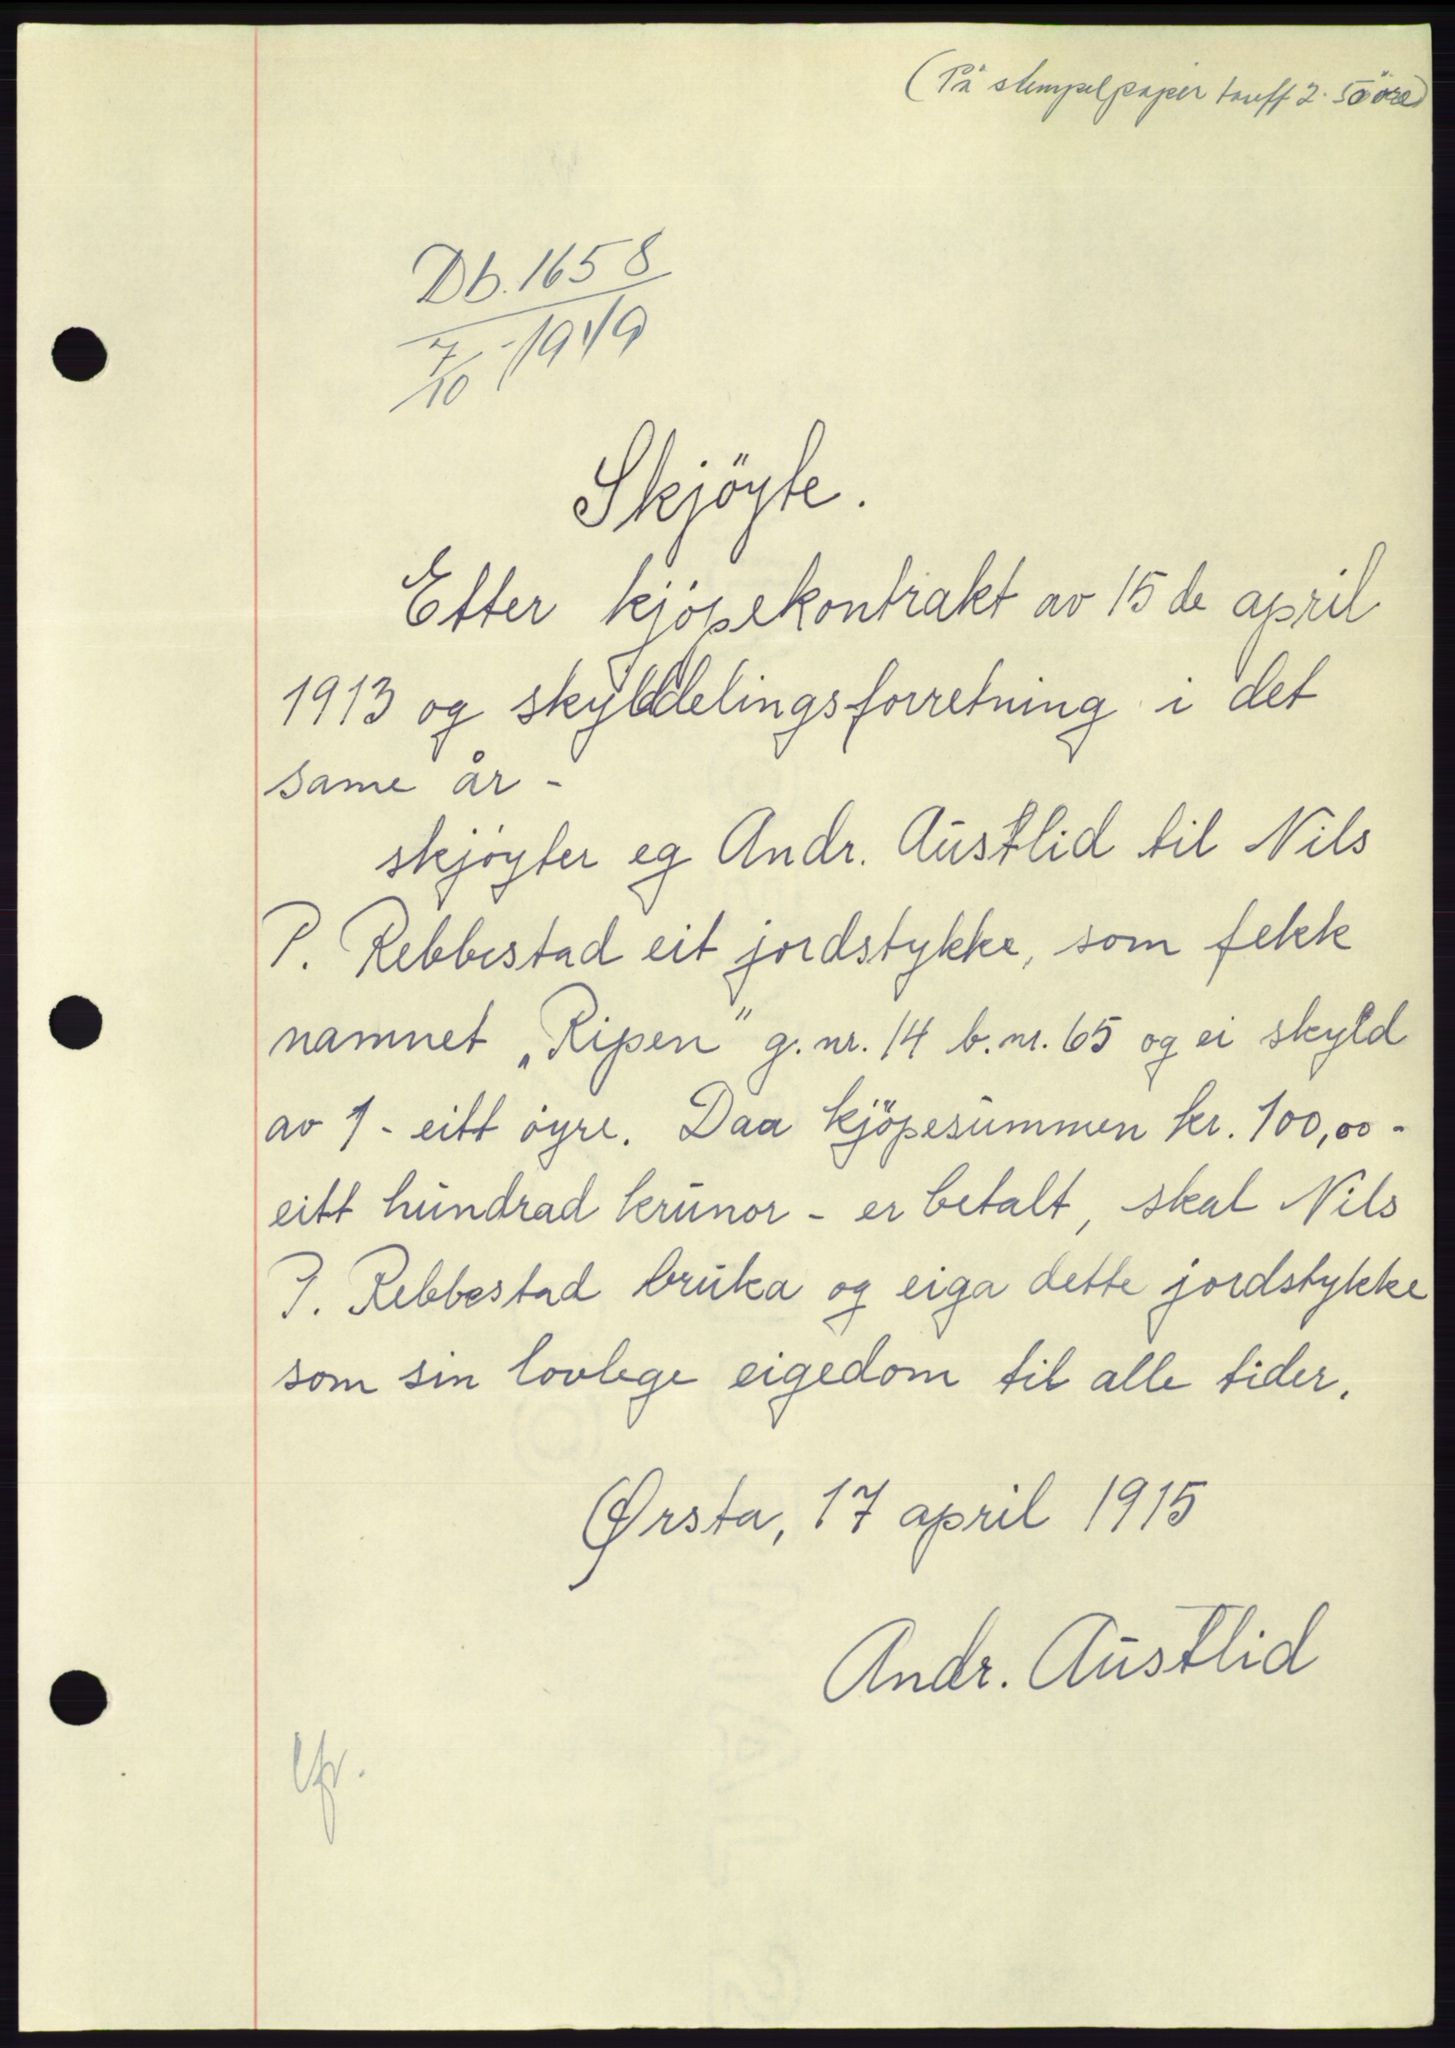 (På stempelpapir tariff 2. 50 öre)
Db. 1658
7/10 - 1949
Skjöyte.
Etter kjöpekontrakt av 15 de april
1913 og skylddelingsforretning i det
same år -
skjøyter eg Andr. Austlid til Nils
P. Rebbestad eit jordstykke, som fekk
namnet „Ripen" g. nr. 14 b. nr. 65 og ei skyld
av 1 - eitt öyre. Daa kjöpesummen kr. 100,00 -
eitt hundrad krunor - er betalt, skal Nils
P. Rebbestad bruka og eiga dette jordstykke
som sin lovlege eigedom til alle tider.
Ørsta, 17 april 1915
Andr. Austlid